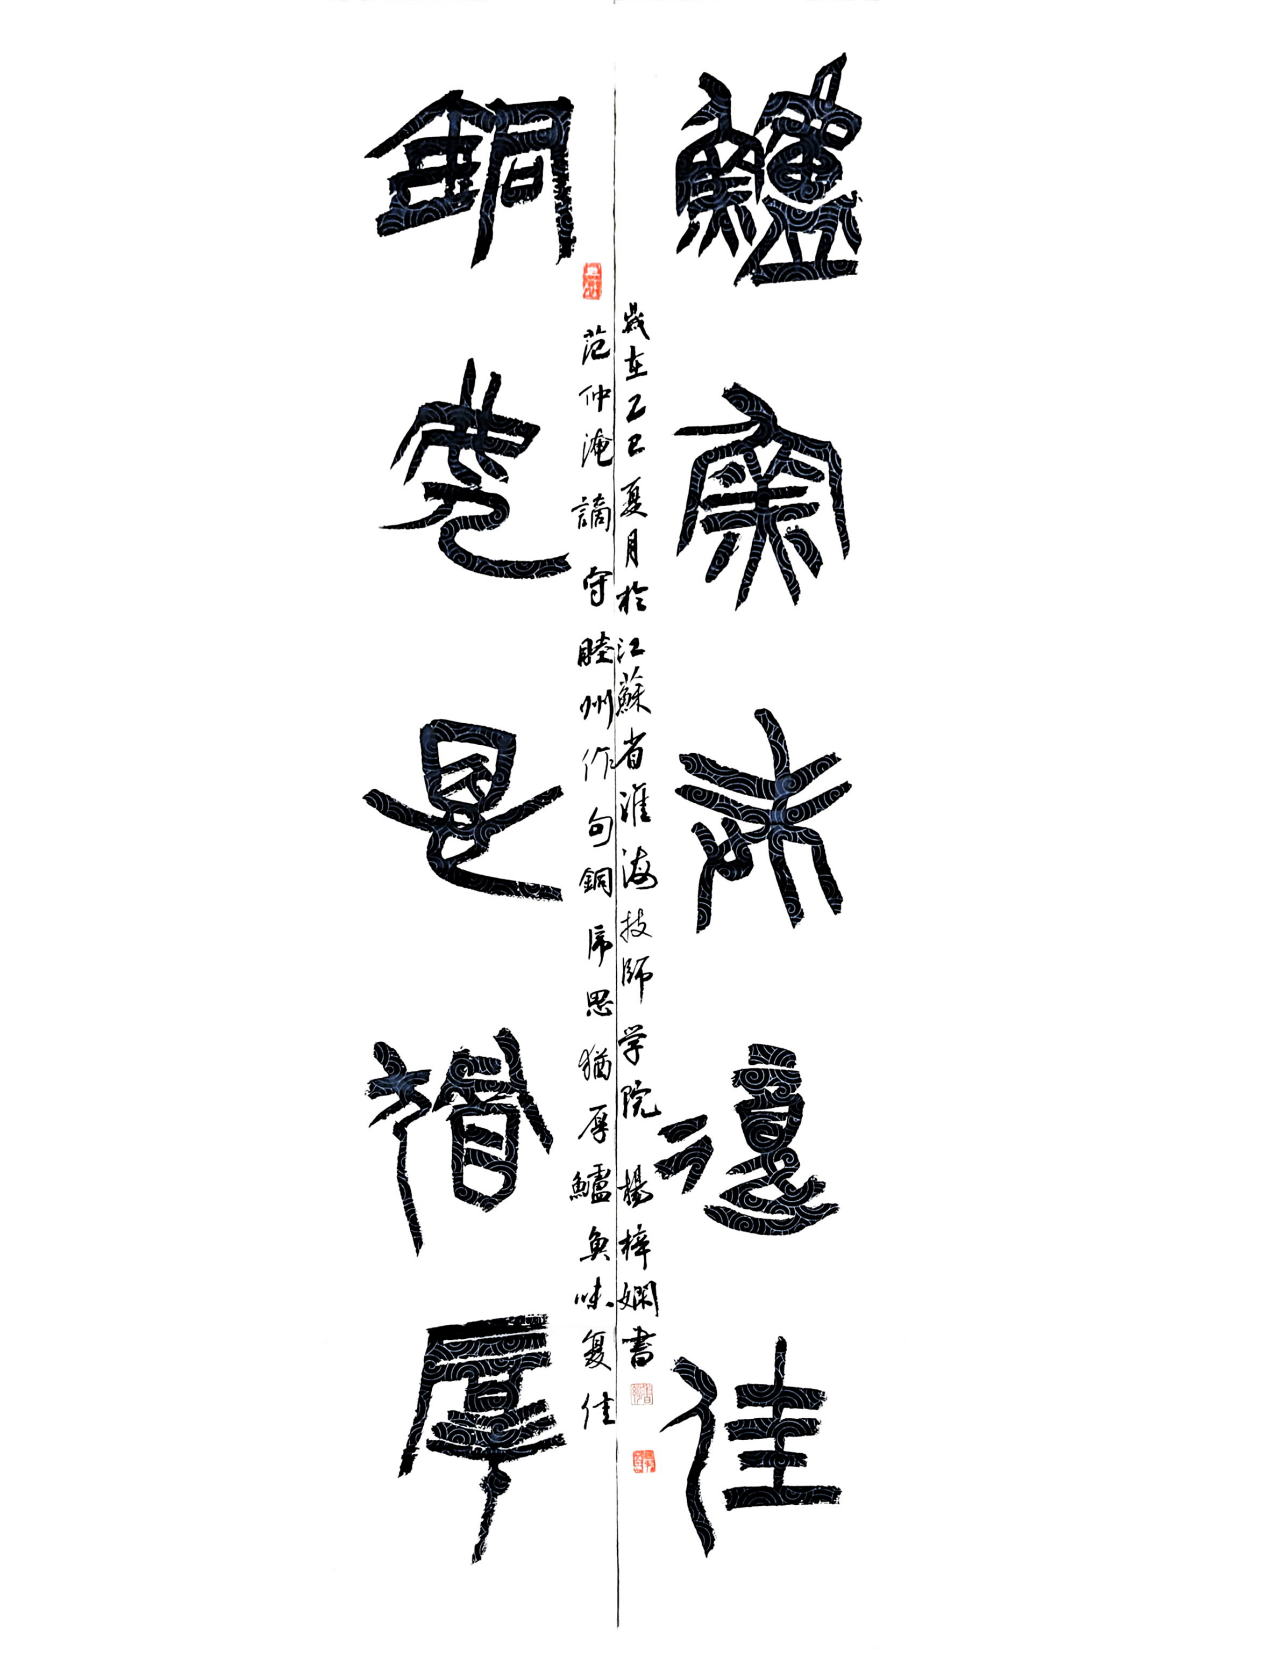 銅虎恩猶厚
鱸魚味復佳
范仲淹謫守睦州作句銅虎恩猶厚鱸魚味复佳
歲在乙巳夏月於江蘇省淮海技師学院 楊梓嫻書